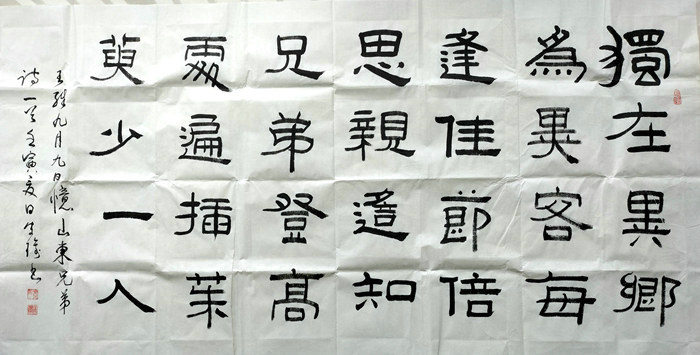 獨在異鄉
為異客每
逢佳節倍
思親遙知
兄弟登高
處遍插茱
萸少一人
王维九月九日憶山東兄弟
诗一首壬寅夏日